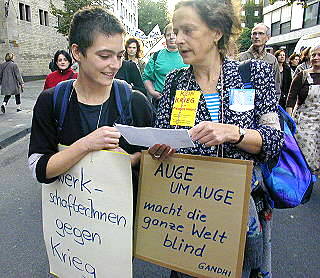 KEIN
KRIEG
Werk-
schafterInnen
gegen
Krieg
AUGE
UM AUGE
macht die
ganze Welt
blind
GANDHI